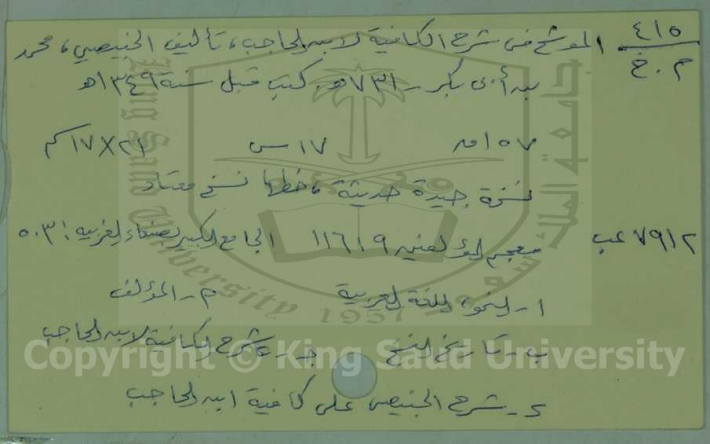 ٤١٥ الموشح في شرح الكافية لابن الحاجب، تأليف الخبيصي، محمد
م.خ بن أبي بكر - ٧٣١هـ. كتب قبل سنة ١٣٤٩هـ
١٥٧ق ١٧س ٢١×١٧سم
نسخة جيدة حديثة، خطها نسخ معتاد
٧٩١٢ عب معجم المؤلفين ٩: ١١٦ الجامع الكبير بصنعاء الغربية: ٥٠٣
١- النحو، اللغة العربية أ- المؤلف
ب- تاريخ النسخ ج- شرح الكافية لابن الحاجب
د- شرح الخبيصي على كافية ابن الحاجب
Copyright © King Saud University
جامعة الملك سعود
King Saud University
1957